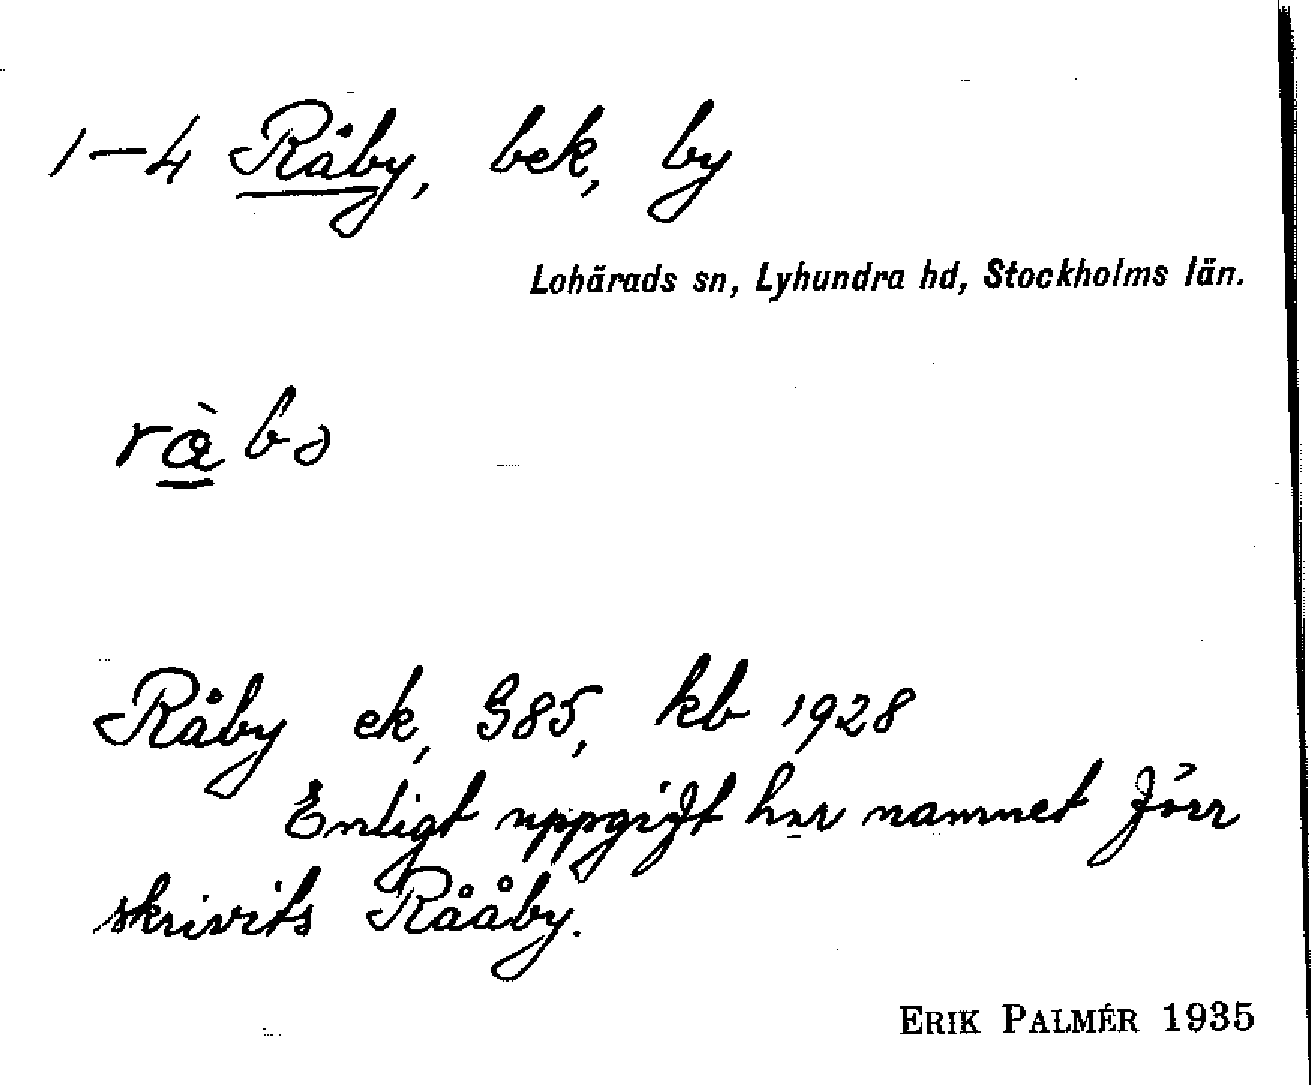 1–4 Råby, bek, by
Lohärads sn, Lyhundra hd, Stockholms län.
Råby ek, G85, kb 1928
Enligt uppgift har namnet förr
skrivits Rååby.
ERIK PALMÉR 1935